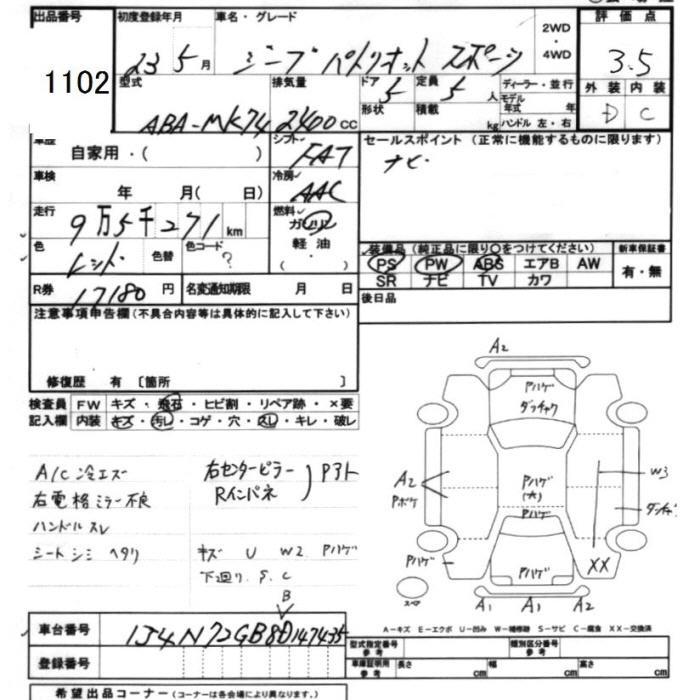 出品番号 初度登録年月 車名・グレード 2WD・4WD 評価点
1102 23 5月 ジープパトリオット スポーツ 3.5
型式 排気量 ドア 5 定員 5人 ディーラー・並行 外装 内装
ABA-MK74 2400cc 形状 積載 kg モデル年式 年 ハンドル 左・右 D C
車歴 自家用・( ) シフト FAT セールスポイント (正常に機能するものに限ります)
ナビ
車検 年 月(日) 冷房 AAC
走行 9万5千271km 燃料 ガソリン 軽油 ( ・ )
色 レッド 色替 色コード ? 装備品 (純正品に限り○をつけてください) 新車保証書
PS PW ABS エアB AW 有・無
SR ナビ TV カワ
R券 17180円 名変通知期限 月 日 後日品
注意事項申告欄(不具合内容等は具体的に記入して下さい)
修復歴 有 〔箇所 〕
検査員記入欄 FW キズ・飛石・ヒビ割・リペア跡・×要
内装 キズ・汚レ・コゲ・穴・スレ・キレ・破レ
A/C冷エズ 右センターピラー
右電格ミラー不良 Rインパネ
ハンドルスレ
シートシミ ヘタリ キズ U W2 Pハゲ
下廻り.S.C
B
A2
Pハゲ
ダッチャク
A2
Pボケ
Pハゲ
(大)
Pハゲ
W3
Pハゲ
Pハゲ
XX
スペア
A1 A1 A2
A-キズ E-エクボ U-凹み W-補修跡 S-サビ C-腐食 XX-交換済
車台番号 1J4N72GB8D147435
登録番号
型式指定番号 参考 類別区分番号 参考
車庫証明用 参考 長さ cm 幅 cm 高さ cm
希望出品コーナー(コーナーは各会場により異なります。)